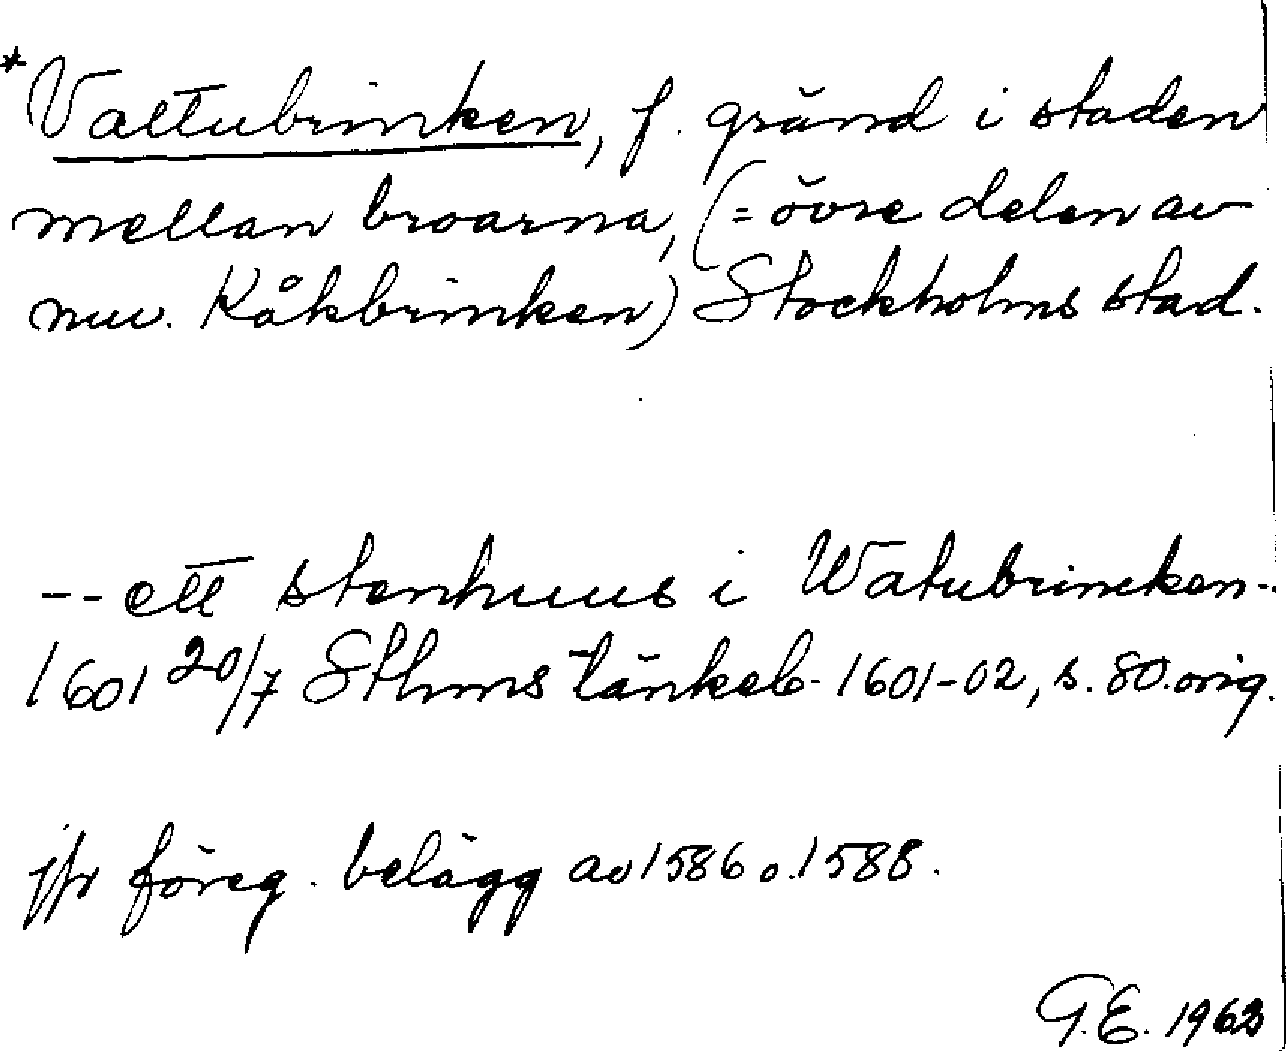 *Vattubrinken, f. gränd i staden
mellan broarna, (= övre delen av
nuv. Kåkbrinken) Stockholms stad.
-- ett stenhuus i Watubrincken --
1601 20/7 Sthms tänkeb. 1601-02, s. 80. orig.
jfr föreg. belägg av 1586 o. 1588.
G.E. 1962